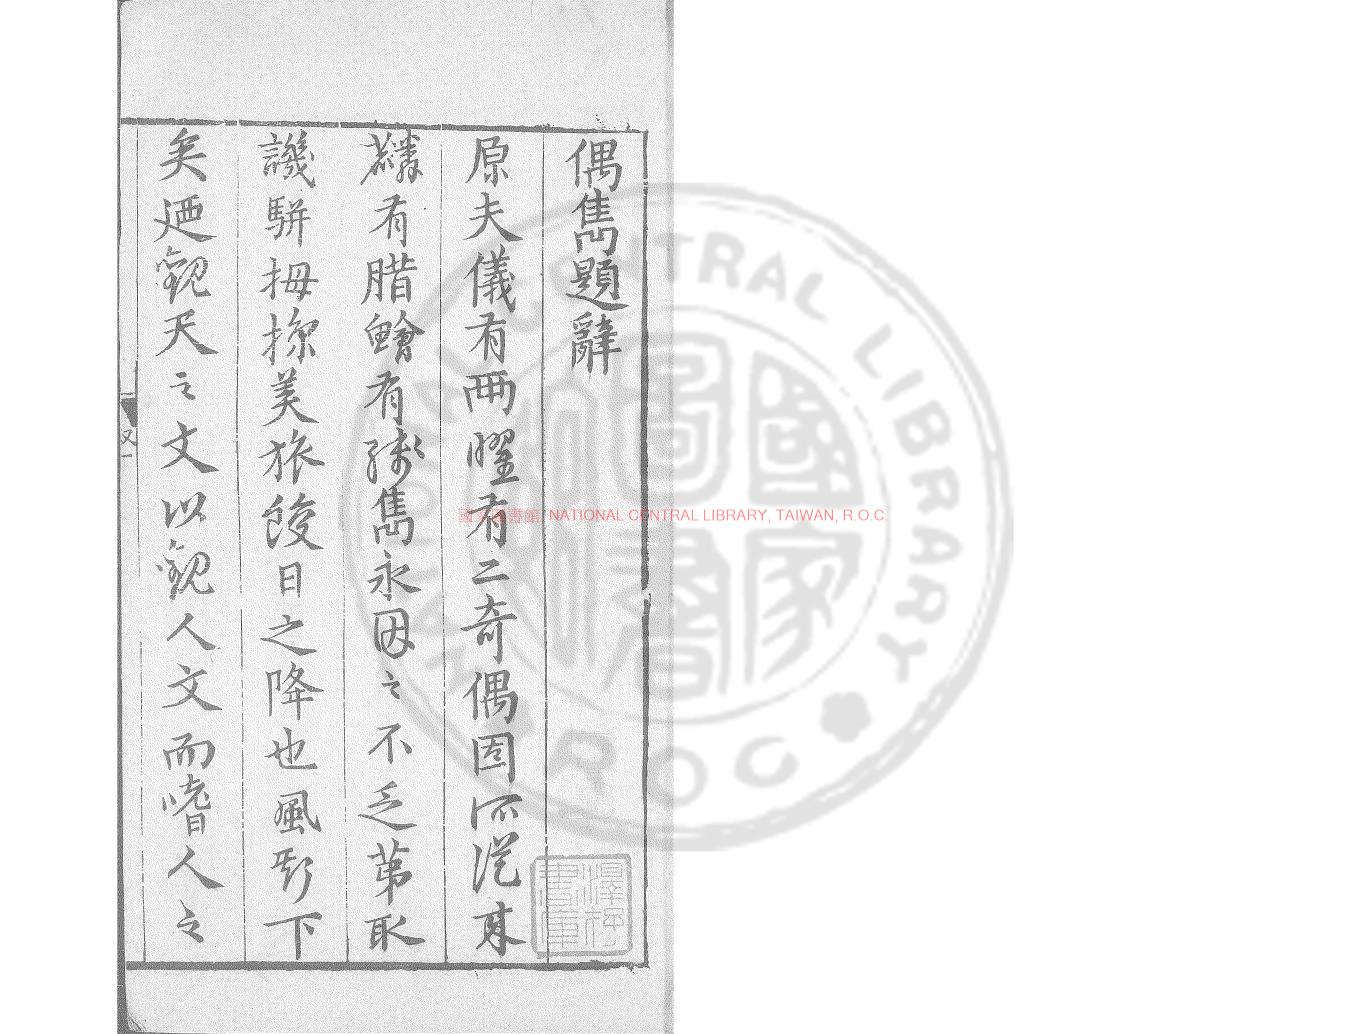 偶雋題辭
原夫儀有兩曜有二奇偶固所從來
麟有腊鱠有殘雋永因之不乏第取
譏駢拇掠美旅餕日之降也風斯下
矣迺觀天之文以觀人文而嗜人之
澤存書庫
國家圖書館, NATIONAL CENTRAL LIBRARY, TAIWAN, R.O.C.
NATIONAL CENTRAL LIBRARY
R O C
國家圖書